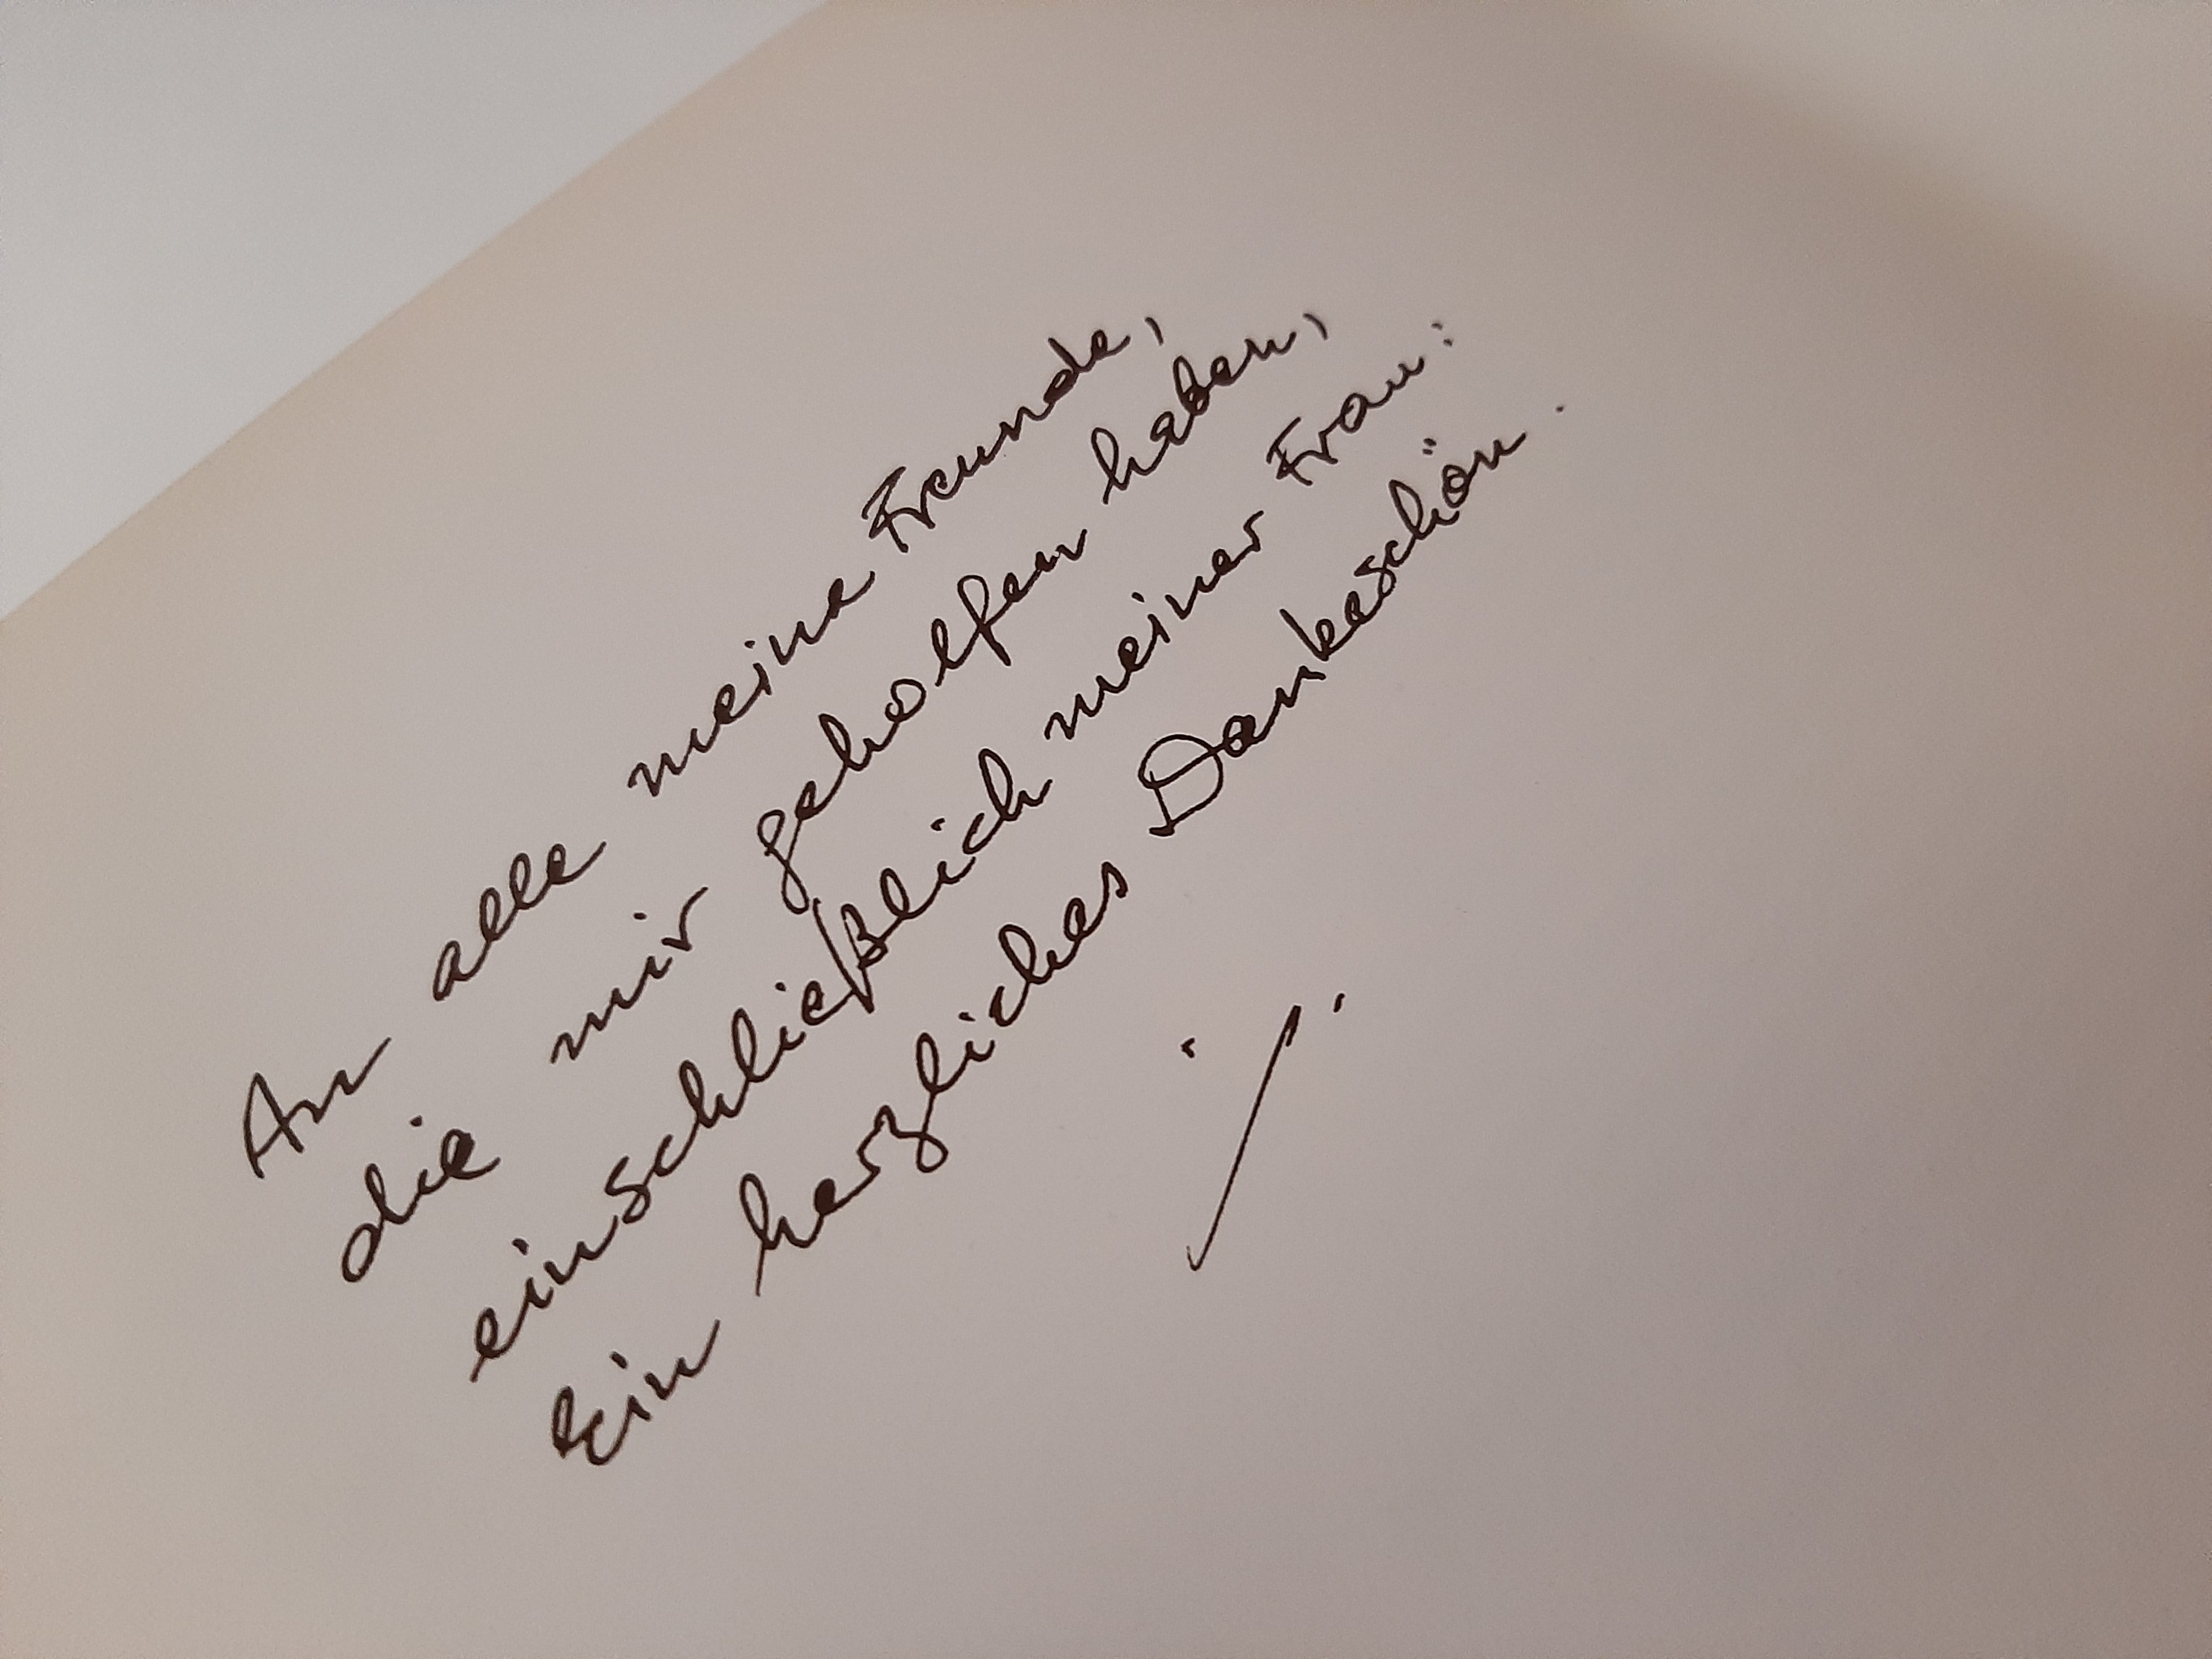 An alle meine Freunde,
die mir geholfen haben,
einschließlich meiner Frau:
Ein herzliches Dankeschön.